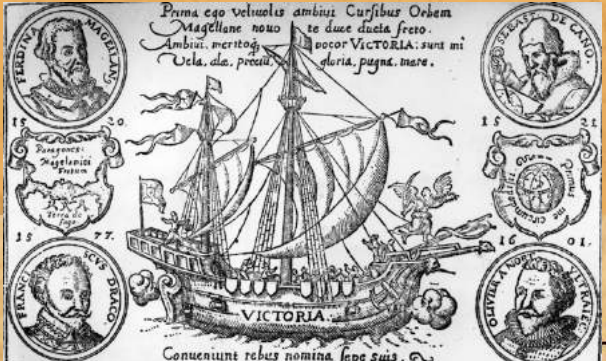 Prima ego veliuolis ambiui Cursibus Orbem
Magellane nouo te duce ducta freto.
Ambiui, meritoq, vocor VICTORIA: sunt mi
Vela, alæ, preciũ, gloria, pugna, mare.
FERDINA MAGELLANS
SEBAST DE CANO.
15 20.
15 21
Magellanici
Fretum
Terra de
Primus me circumdedisti
15 77.
16 01.
FRANCISCVS DRACO
OLIVIER A NORT VLTRAIECT
VICTORIA
Conveniunt rebus nomina sepe suis.